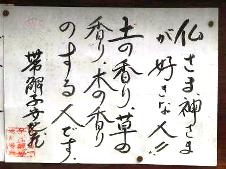 仏さま、神さま
が好きな人!!
土の香り、草の
香り、木の香り
のする人です。
帯解子安地蔵